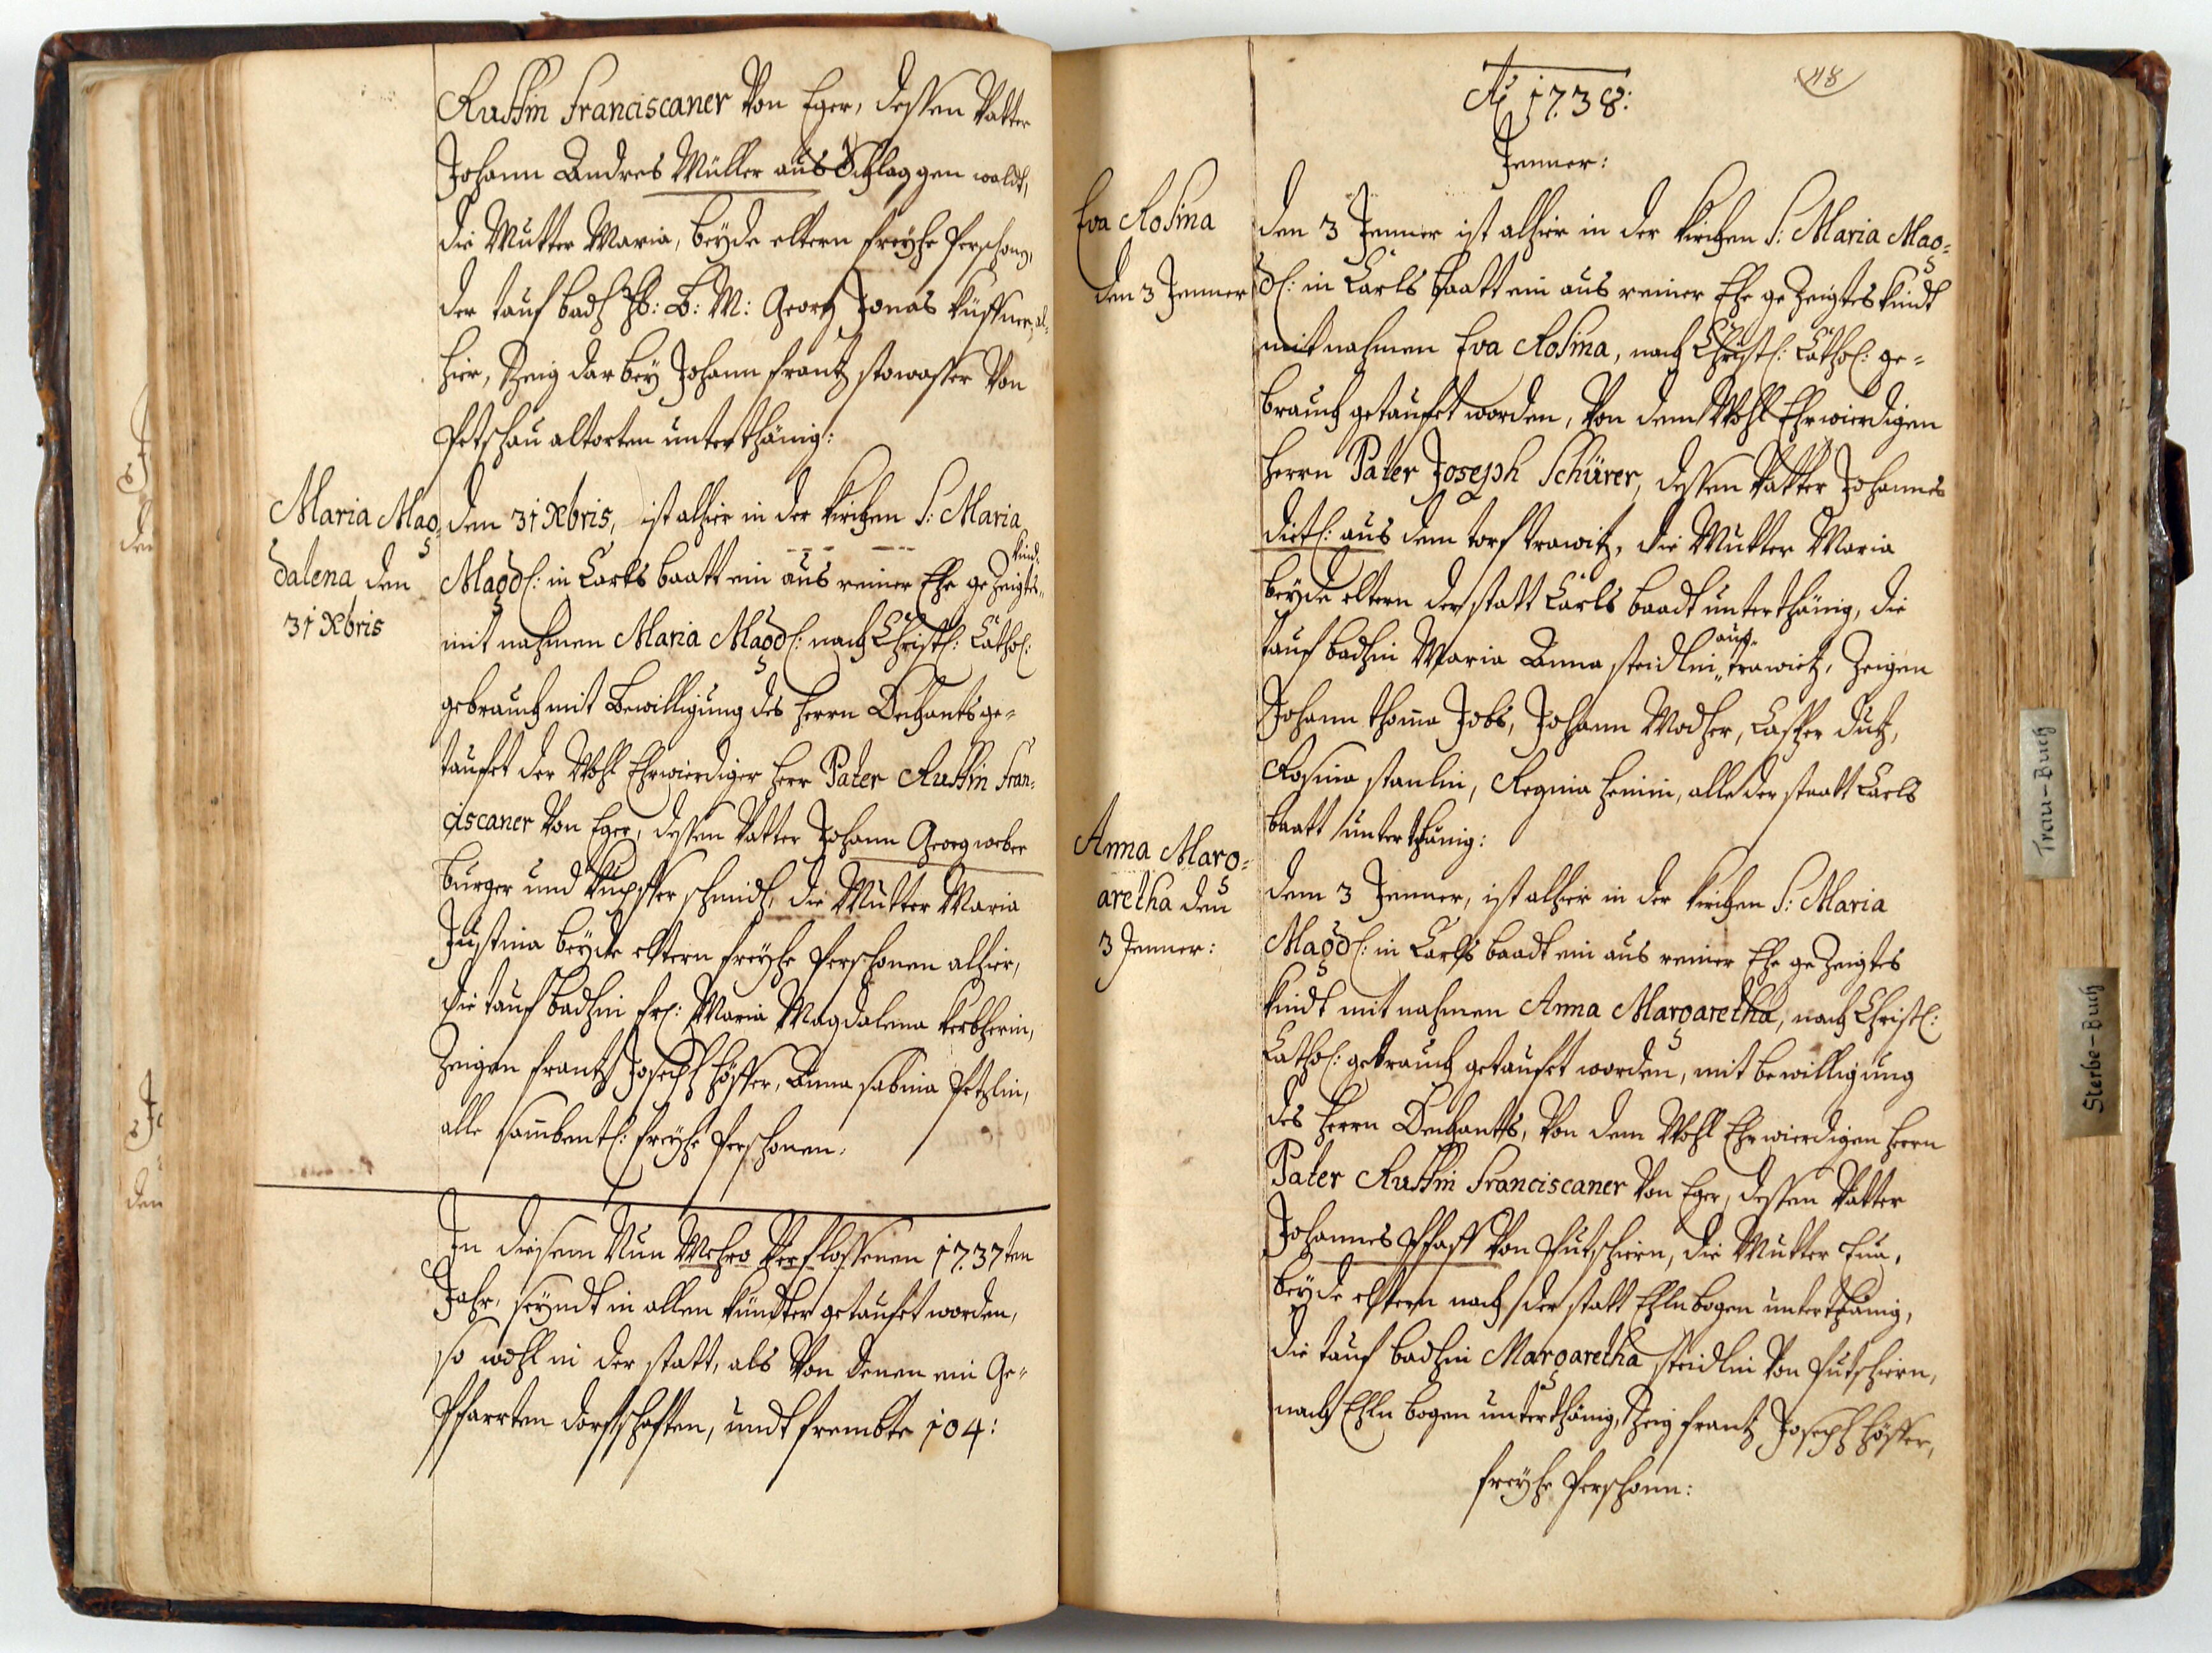 Ruffin Franciscaner Von Eger, dessen Vatter
Johann Andres Müller aus Schlaggen waldt,
die Mutter Maria, beyde eltern freyhe Perschong,
der tauf badh Hb: B: M: Georg Jonas Küffner, al-
hier, Zeig dar bey Johann frantz stowasser Von
Petschau altorten unterthänig:
Maria Mag-
dalena den
31 Xbris
den 31 Xbris, ist alhier in der Kirchen S: Maria
Magdl: in Carls baatt ein aus reiner Ehe ge Zeigtes Kind
mit nahmen Maria Magdl: nach Christl: Cathol:
gebrauch mit Bewilligung des Herrn Dechants ge-
tauft der Wohl Ehrwierdiger Herr Pater Ruffin Fran-
ciscaner Von Eger, dessen Vatter Johann Georg weber
burger und Kupffer schmidt, die Mutter Maria
Justina beyde eltern freyhe Perschonen alhier,
die tauf badhin fr: Maria Magdalena
Zeigen frantz Joseph Höffer, Anna Sabina Petzlin,
alle sambentl: freyhe Perschonen.
In diesem Nun Mehro Verflossenen 1737ten
Jahr, seyndt in allen Kündter getauft worden,
so wohl in der statt, als Von denen ein Ge-
Pfarrten dorffschafften, undt frembte 104:
48
Ao 1738:
Jenner:
Eva Rosina
den 3 Jenner
den 3 Jenner ist alhier in der Kirchen S: Maria Mag-
dl: in Carls baatt ein aus reiner Ehe ge Zeigtes Kindt
mit nahmen Eva Rosina, nach Christl: Cathol: ge-
brauch getauft worden, Von dem Wohl Ehrwierdigen
Herrn Pater Joseph Schürer, dessen Vatter Johannes
dietl: aus dem torf trawitz, die Mutter Maria
beyde eltern der statt Carls baadt unterthänig, die
tauf badhin Maria Anna steidlin, aus trawietz, Zeigen
Johann thoma Jobs, Johann Modher, Casper dutz,
Rosina staulin, Regina heinin, alle der staatt Carls
baatt unterthänig:
Anna Marg-
aretha den
3 Jenner:
dem 3 Jenner, ist alhier in der Kirchen S: Maria
Magdl: in Carls baadt ein aus reiner Ehe ge Zeigtes
Kindt mit nahmen Anna Margaretha, nach Christl:
Cathol: gebrauch getauft worden, mit bewilligung
des Herrn Dechants, Von dem Wohl Ehrwierdigen Herrn
Pater Ruffin Franciscaner Von Eger, dessen Vatter
Johannes Pfaff Von Putschiern, die Mutter Eua,
beyde eltern nach der statt Ehlnbogen unterthänig,
die tauf badhin Margaretha steidlin Von Putschiern,
nach Ehln bogen unterthänig, Zeig frantz Joseph Höffer,
freyhe Perschonn:
Trau-Buch
Sterbe-Buch